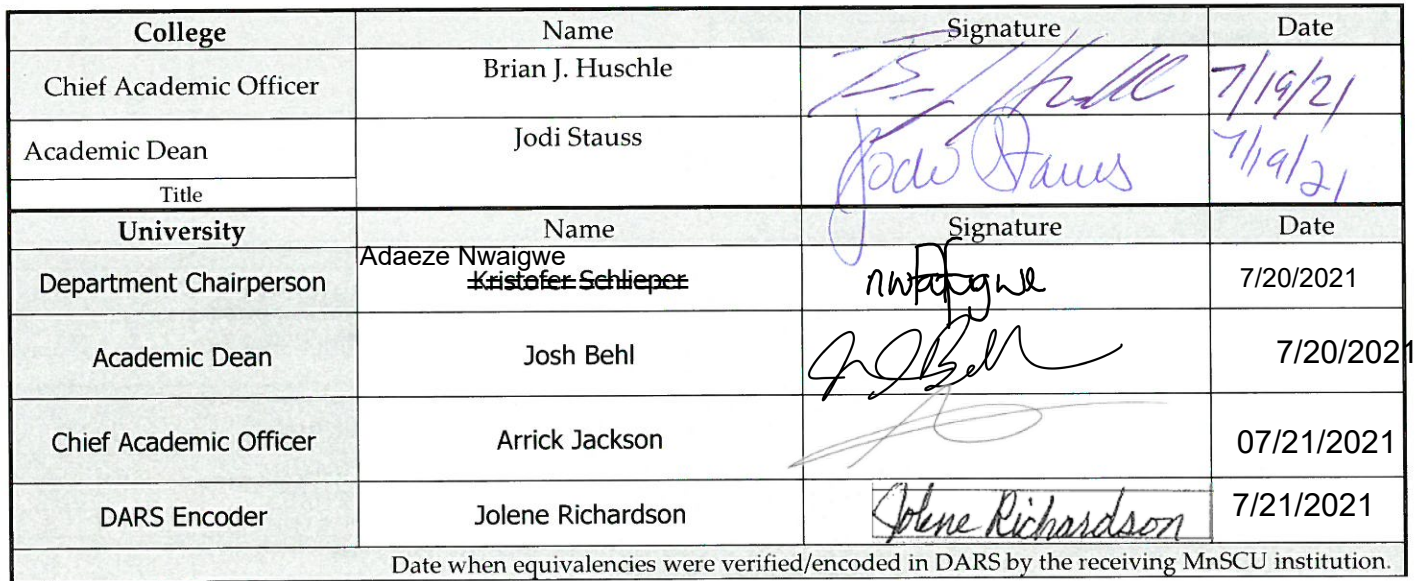 College Name Signature Date
Chief Academic Officer Brian J. Huschle 7/19/21
Academic Dean Jodi Stauss Jodi Stauss 7/19/21
Title
University Name Signature Date
Adaeze Nwaigwe
Department Chairperson Kristofer Schlieper nwaigwe 7/20/2021
Academic Dean Josh Behl 7/20/2021
Chief Academic Officer Arrick Jackson 07/21/2021
DARS Encoder Jolene Richardson Jolene Richardson 7/21/2021
Date when equivalencies were verified/encoded in DARS by the receiving MnSCU institution.